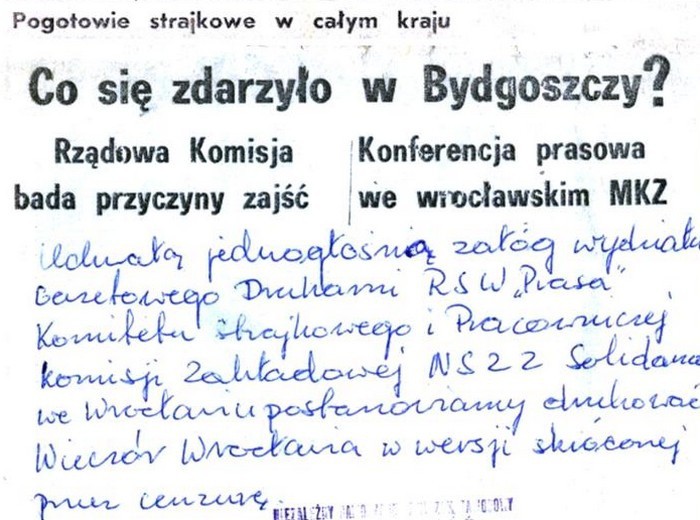 Pogotowie strajkowe w całym kraju
Co się zdarzyło w Bydgoszczy?
Rządowa Komisja
bada przyczyny zajść
Konferencja prasowa
we wrocławskim MKZ
Uchwałą jednogłośnią załóg wydziału
Gazetowego Drukarni RSW „Prasa”
Komitetu strajkowego i Pracowniczej
Komisji Zakładowej NSZZ Solidarn
we Wrocławiu postanawiamy drukować
Wieczór Wrocławia w wersji skróconej
przez cenzurę.
NIEZALEŻNY